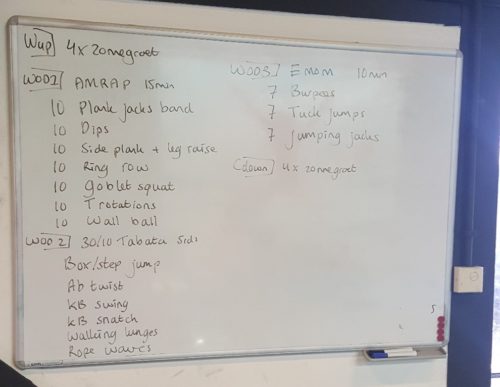 Wup 4x zonnegroet
WOD1 AMRAP 15min
10 Plank jacks band
10 Dips
10 Side plank + leg raise
10 Ring row
10 Goblet squat
10 T rotations
10 Wall ball
WOD 2 30/10 Tabata
Box/step jump
Ab twist
KB swing
KB snatch
Walking lunges
Rope waves
WOD3 EMOM 10min
7 Burpees
7 Tuck jumps
7 Jumping jacks
Cdown 4x zonnegroet
5